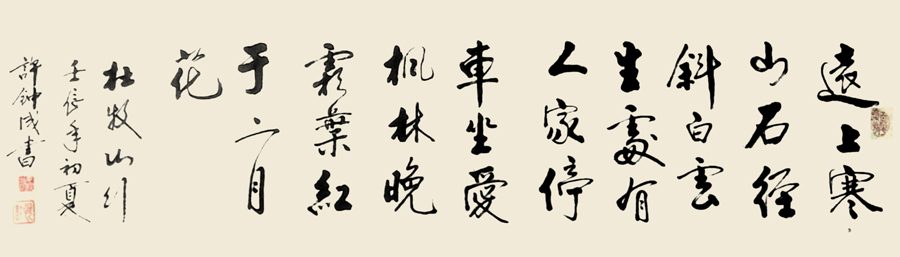 遠上寒
山石徑
斜白雲
生處有
人家停
車坐愛
楓林晚
霜葉紅
于二月
花
杜牧山行
壬辰年初夏
許鈡成書